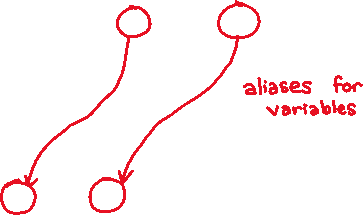 aliases for
variables